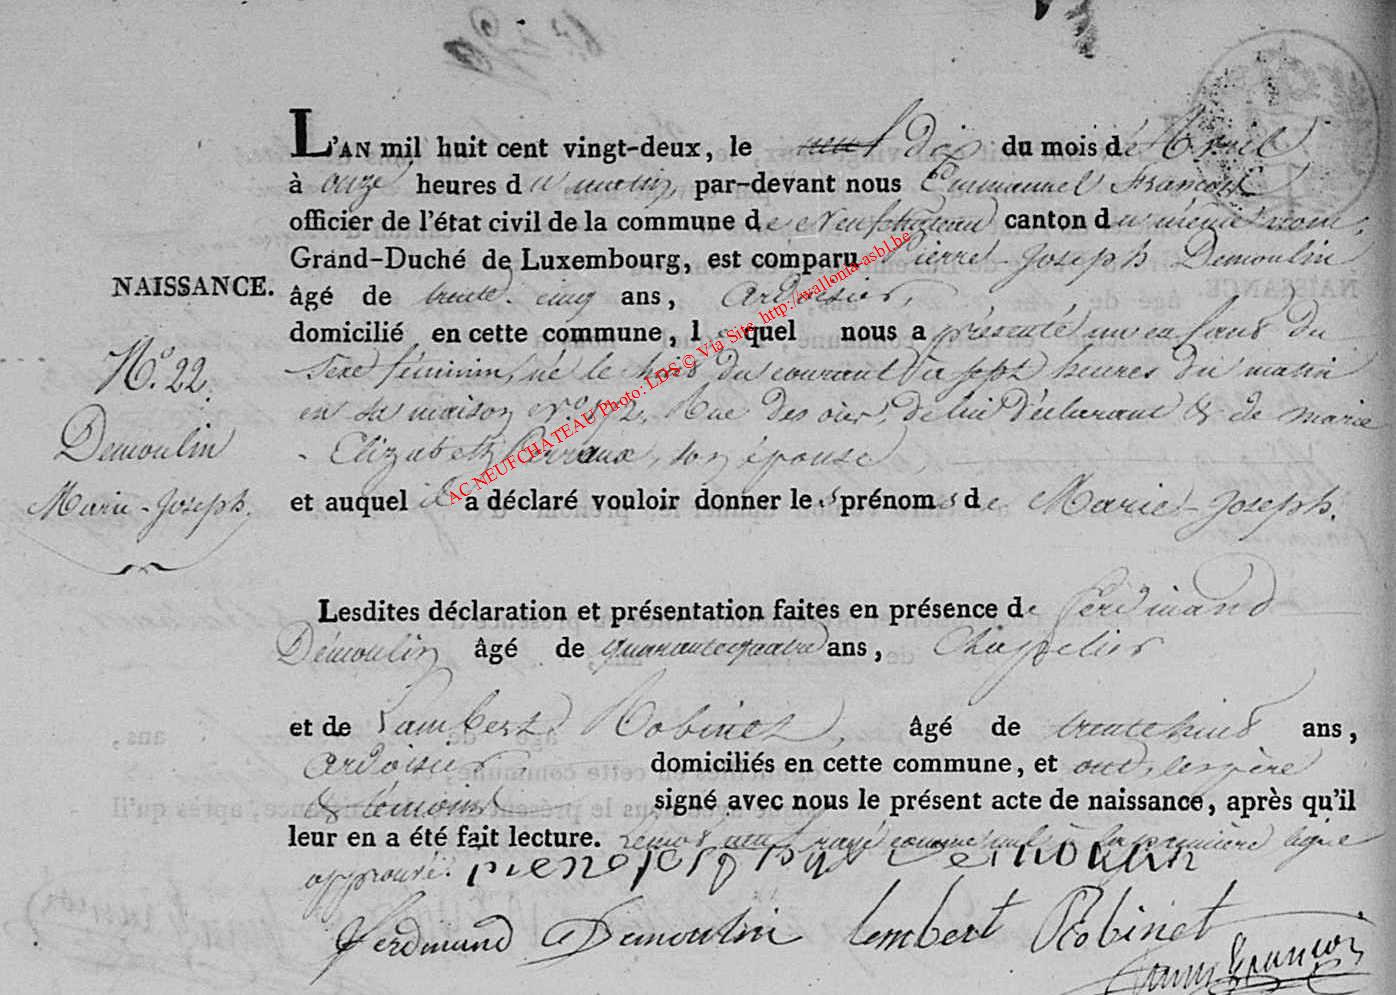 L'AN mil huit cent vingt-deux, le neuf dix du mois de Avril
à onze heures du matin, par-devant nous Emmanuel François
officier de l'état civil de la commune de Neufchateau canton du même nom,
Grand-Duché de Luxembourg, est comparu Pierre Joseph Demoulin
NAISSANCE.
âgé de trente-cinq ans, Ardoisier,
domicilié en cette commune, lequel nous a présenté un enfant du
N.o 22.
sexe féminin, né le huit du courant à sept heures du matin
en sa maison N.o 172, Rue des, de lui déclarant & de marie
Demoulin
Elizabeth, son épouse
Marie-Joseph.
et auquel il a déclaré vouloir donner les prénoms de Marie-Joseph.
Lesdites déclaration et présentation faites en présence de Ferdinand
Démoulin âgé de quarante quatre ans, Chapelier
et de Lambert Robinet, âgé de trente huit ans,
Ardoisier domiciliés en cette commune, et ont, les père
& témoins signé avec nous le présent acte de naissance, après qu'il
leur en a été fait lecture. Le mot neuf rayé comme nul à la première ligne
approuvé. pierre joseph Demoulin
Ferdinand Demoulin lambert Robinet
Emm François
AC NEUFCHATEAU Photo: LDS © Via Site http://wallonia-asbl.be